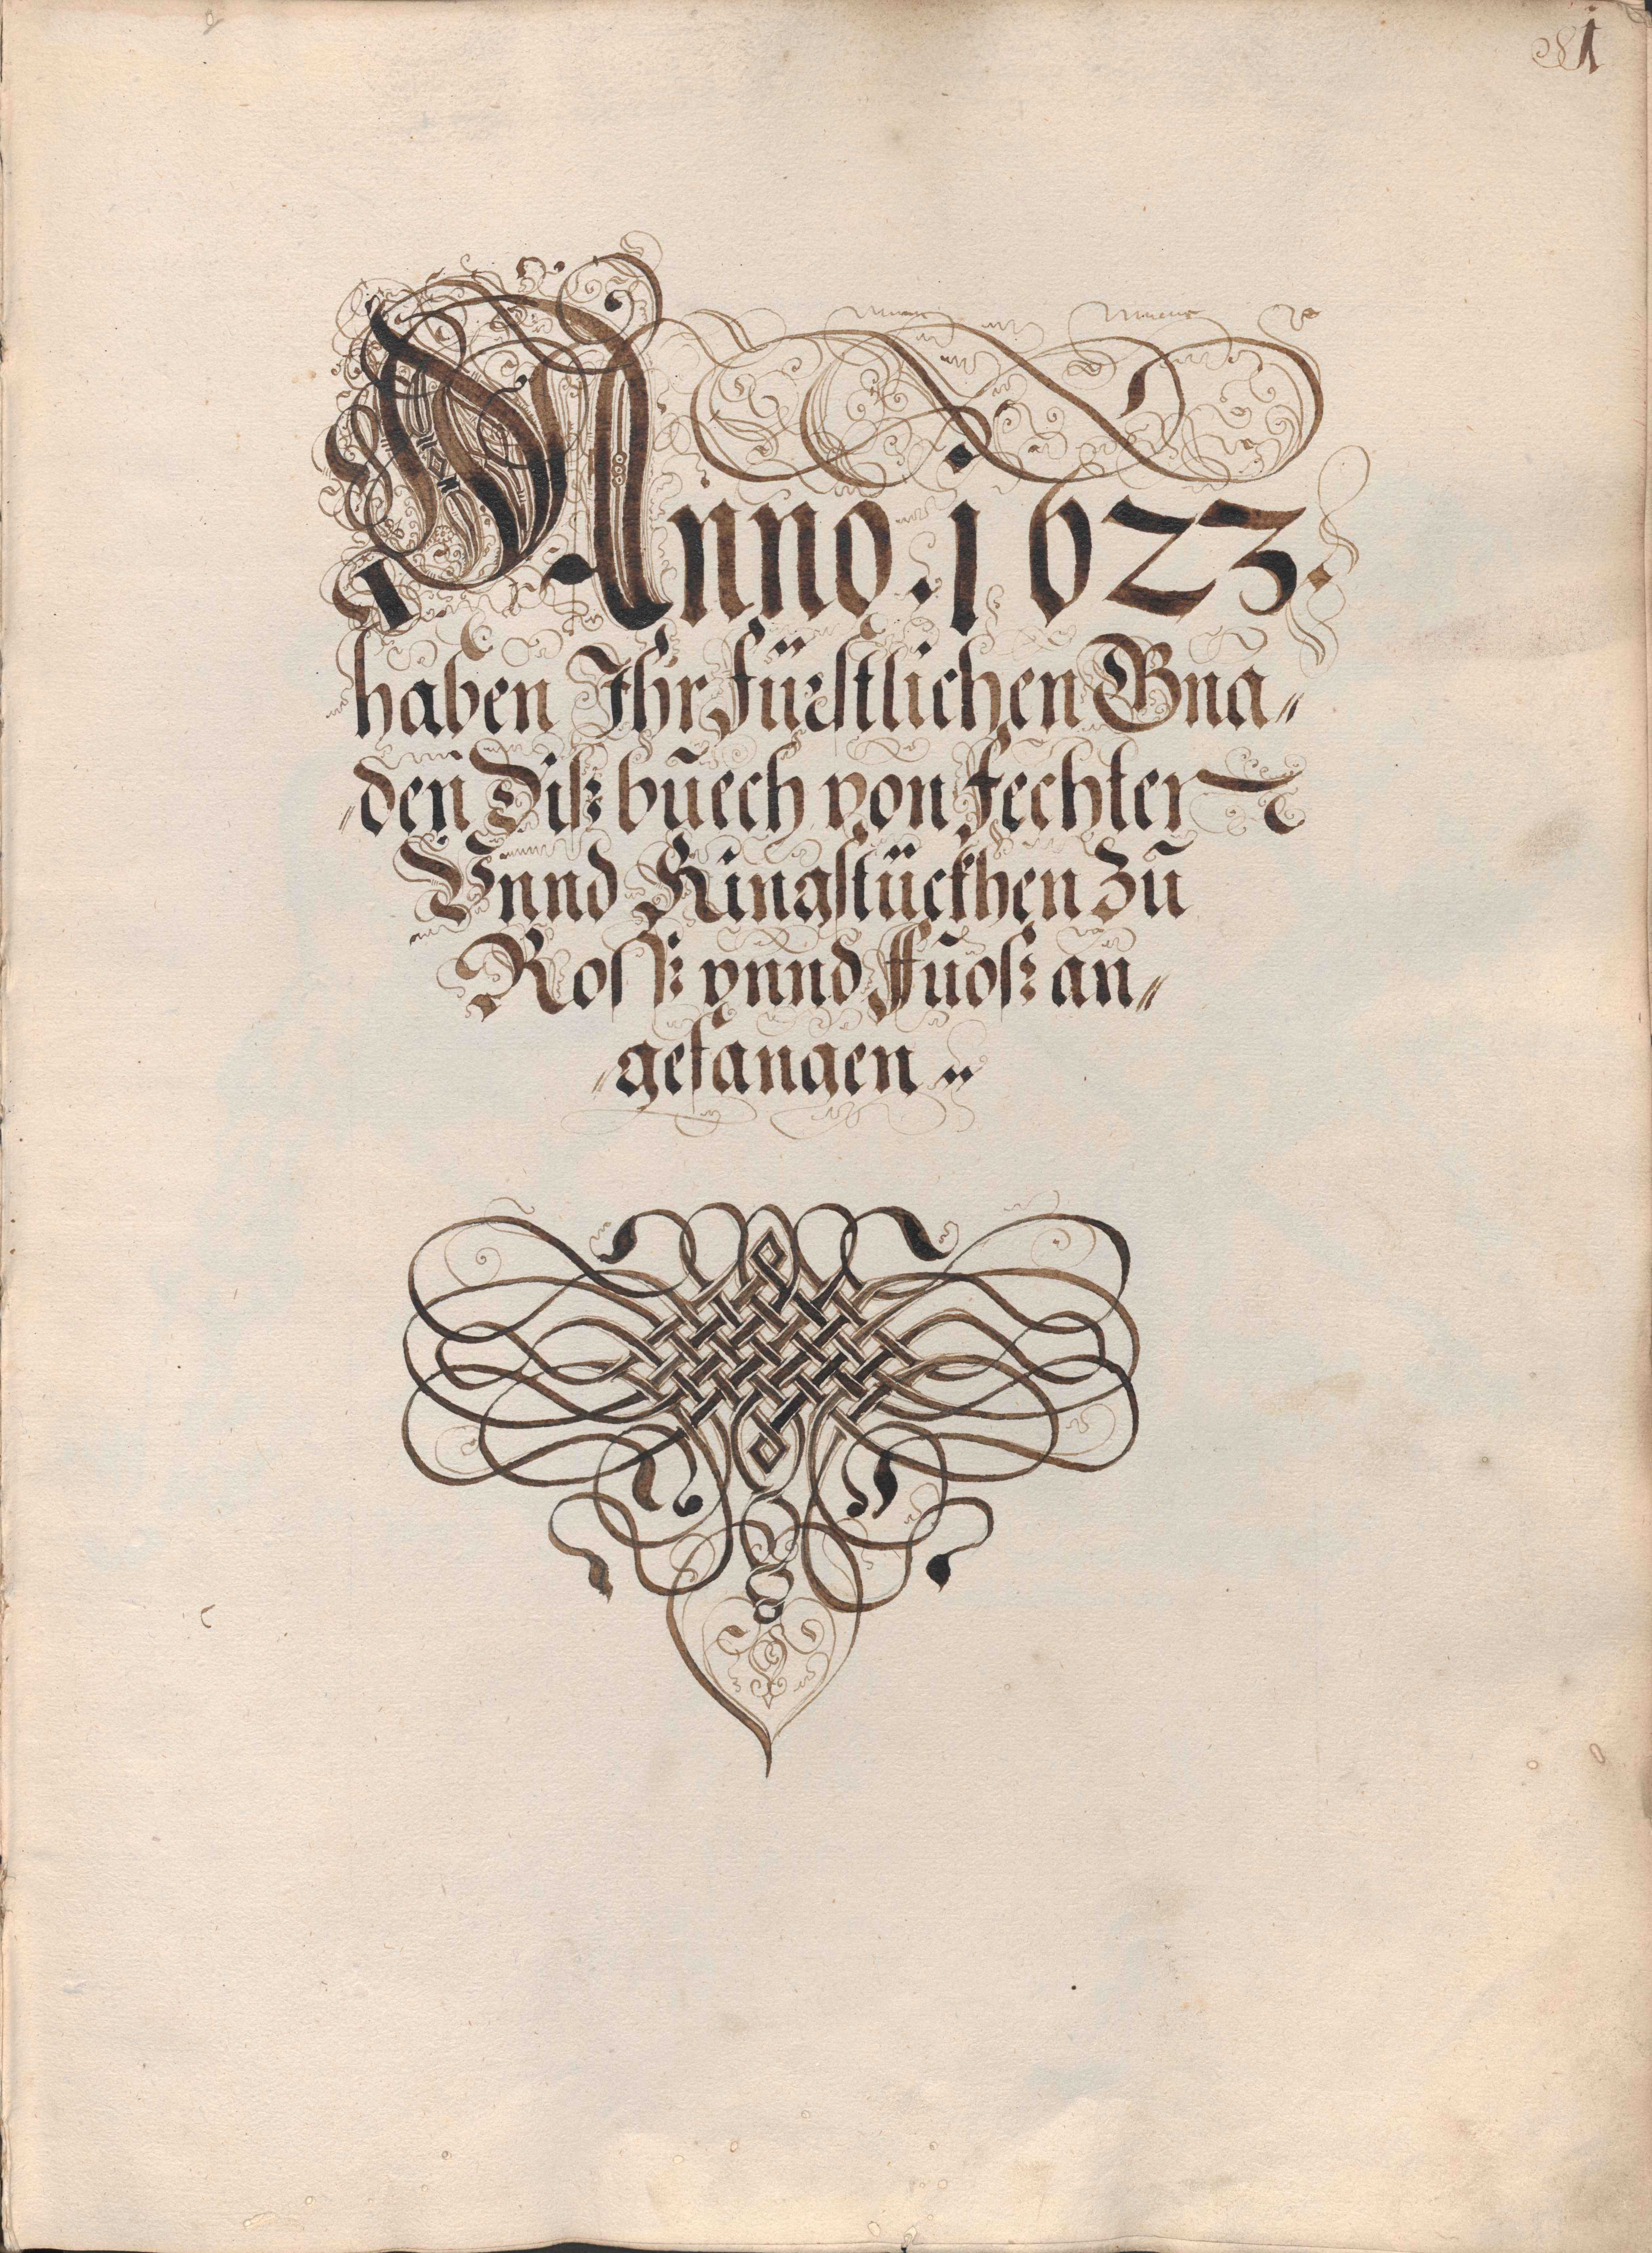 1
Anno. 1623.
haben Ihr fürstlichen Gna⸗
⸗den Diß bŭech von fechter
Vnnd Ringstückhen Zŭ
Rosß vnnd Fŭoß an⸗
⸗gefangen